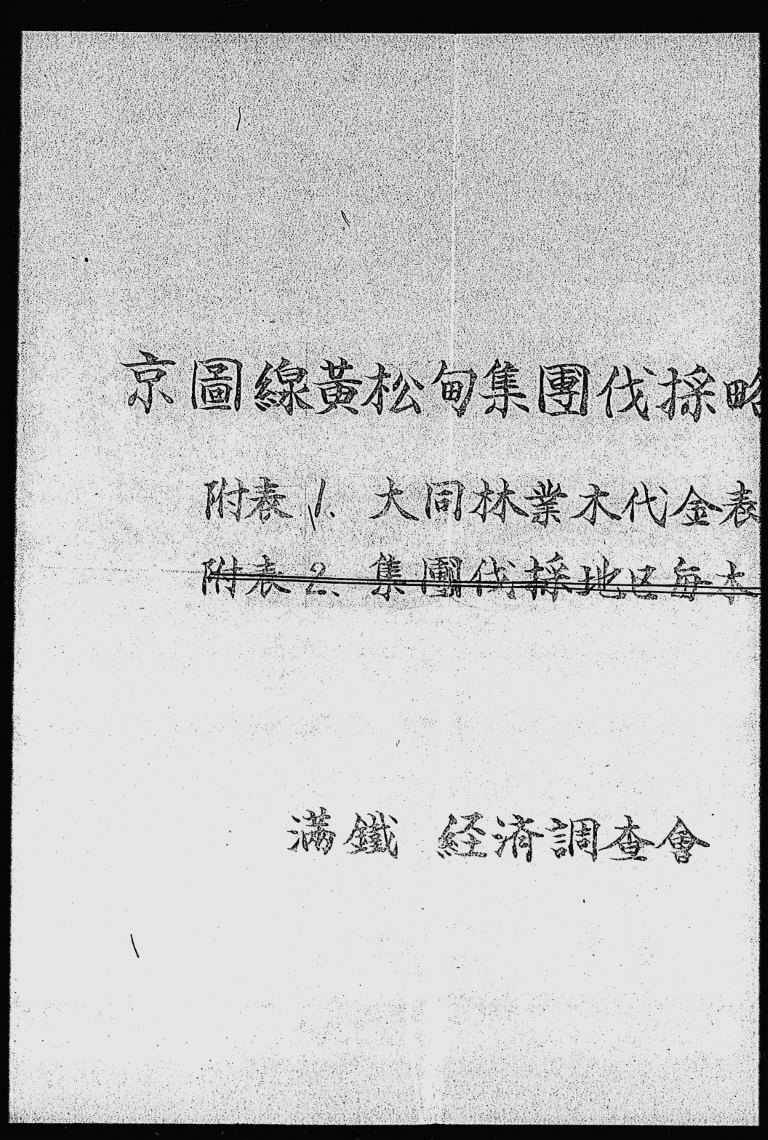 京圖線黃松甸集團伐採略
附表 1. 大同林業木代金表
附表 2. 集團伐採地区每木
満鐵 経済調查會